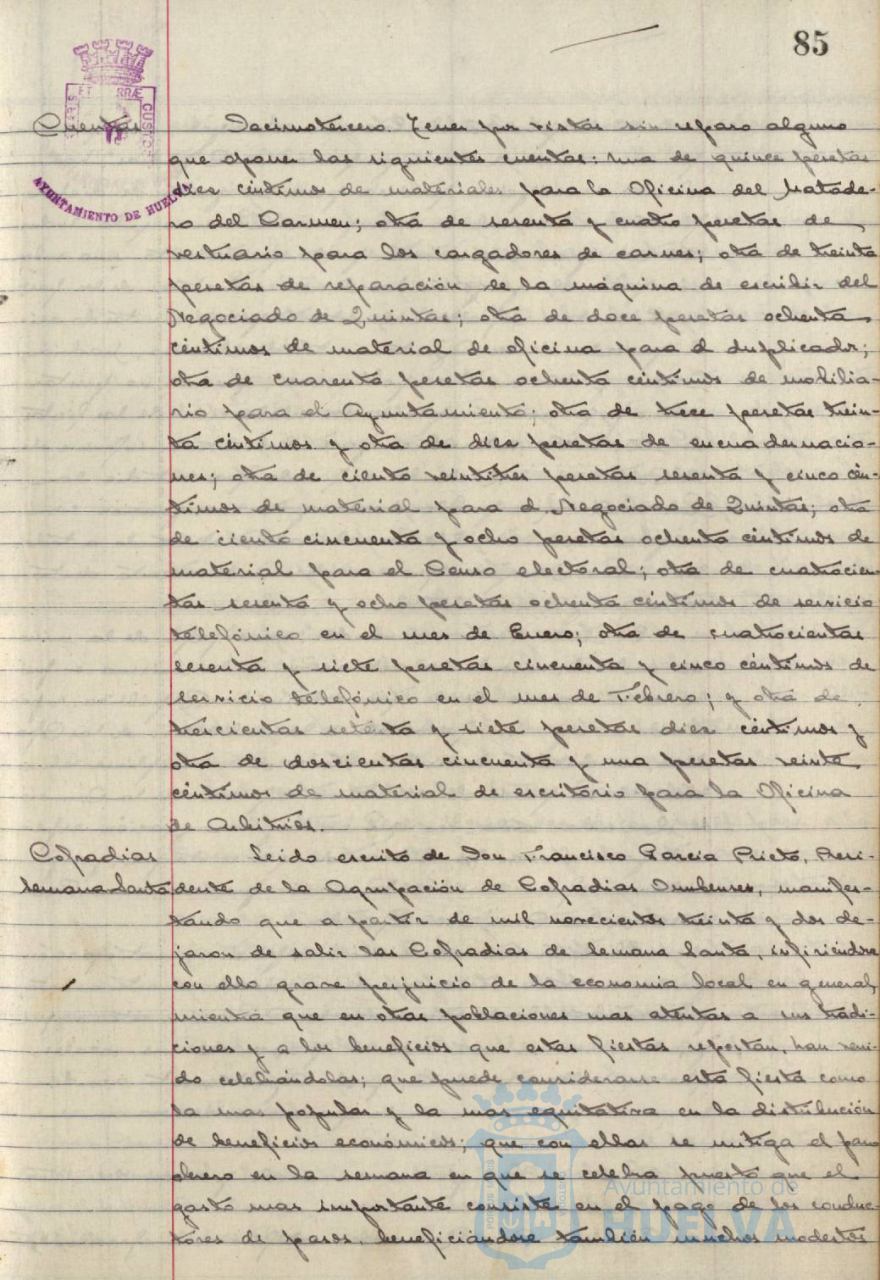 85
PORTUS MARIS ET TERRÆ CUSTODIA
AYUNTAMIENTO DE HUELVA
Cuentas
Dacimotercero. Tener por vistas sin reparo alguno
que oponer las siguientes cuentas: una de quince pesetas
diez céntimos de materiales para la Oficina del Matade-
ro del Carmen; otra de sesenta y cuatro pesetas de
vestuario para los cargadores de carnes; otra de treinta
pesetas de reparación de la máquina de escribir del
Negociado de Quintas; otra de doce pesetas ochenta
céntimos de material de oficina para el duplicador;
otra de cuarenta pesetas ochenta céntimos de mobilia-
rio para el Ayuntamiento; otra de trece pesetas trein-
ta céntimos y otra de diez pesetas de encuadernacio-
nes; otra de ciento veintitres pesetas sesenta y cinco cén-
timos de material para el Negociado de Quintas; otra
de ciento cincuenta y ocho pesetas ochenta céntimos de
material para el Censo electoral; otra de cuatrocien-
tas sesenta y ocho pesetas ochenta céntimos de servicio
telefónico en el mes de Enero; otra de cuatrocientas
sesenta y siete pesetas cincuenta y cinco céntimos de
servicio telefónico en el mes de Febrero; y otra de
trescientas setenta y siete pesetas diez céntimos y
otra de doscientas cincuenta y una pesetas veinte
céntimos de material de escritorio para la Oficina
de Arbitrios.
Cofradias
Semana Santa
Leido escrito de Don Francisco Garcia Prieto, Presi-
dente de la Agrupación de Cofradias Onubenses, manifes-
tando que a partir de mil novecientos treinta y dos de-
jaron de salir las Cofradias de Semana Santa, infiriéndose
con ello grave perjuicio de la economia local en general,
mientra que en otras poblaciones mas atentas a sus tradi-
ciones y a los beneficios que estas fiestas reportan, han veni-
do celebrándolas; que puede considerarse esta fiesta como
la mas popular y la mas equitativa en la distribución
de beneficios económicos; que con ellas se mitiga el paro
obrero en la semana en que se celebra puesto que el
gasto mas importante consiste en el pago de los conduc-
tores de pasos, beneficiándose también muchos modestos
Ayuntamiento de
HUELVA